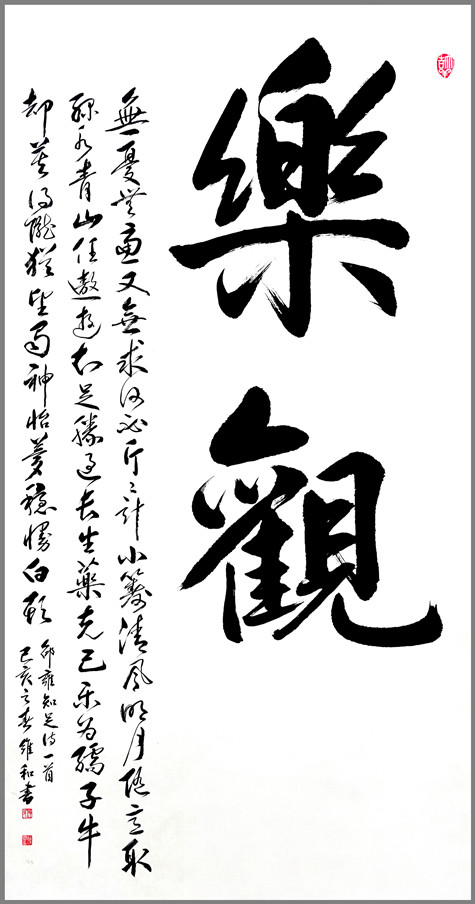 樂觀
無憂無慮又無求何必斤斤計小籌清風明月隨意取
綠水青山任遨遊知足勝過長生藥克己乐为孺子牛
却莫得隴猶望蜀神怡夢穩慢白頭
邵雍知足詩一首
己亥之春維和書